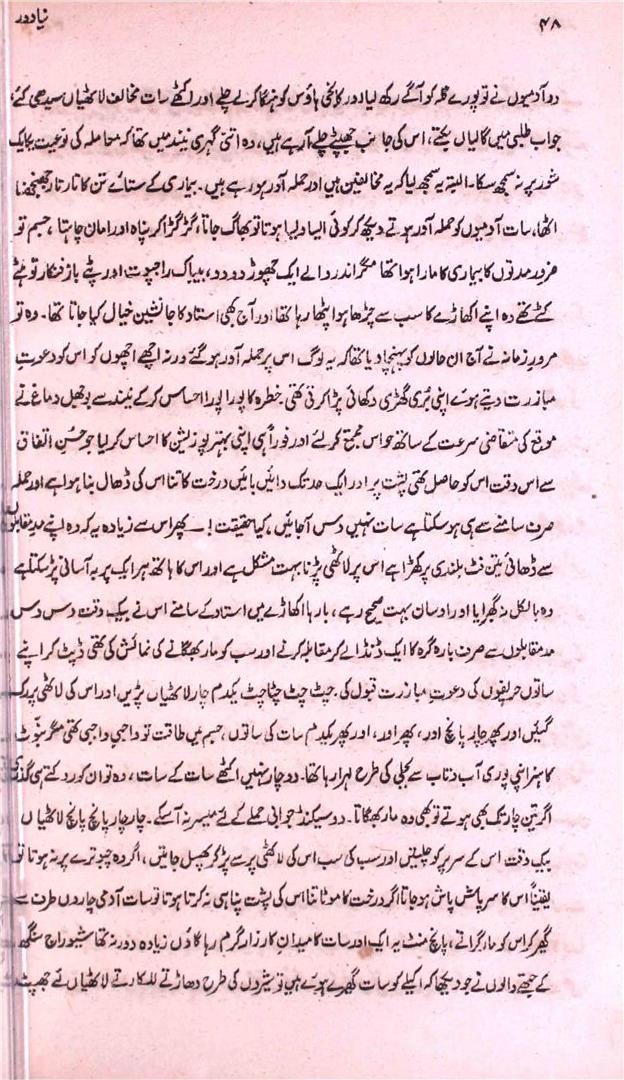 ۴۸
نیا دور
دو آدمیوں نے تو پورے گلہ کو آگے رکھ لیا دور کا بخی ہاؤس کو ہنکا کر لے چلے اور اکٹھے سات مخالف لاٹھیاں سیدھی کئے،
جواب طلبی میں گالیاں بکتے، اس کی جانب جھپٹے چلے آ رہے ہیں، وہ اتنی گہری نیند میں تھا کہ معاملہ کی نوعیت یکایک
شور پر نہ سمجھ سکا۔ البتہ یہ سمجھ لیا کہ یہ مخالفین ہیں اور حملہ آور ہو رہے ہیں۔ بیماری کے ستائے تن کا تار تار جھنجھنا
اٹھا، سات آدمیوں کو حملہ آور ہوتے دیکھ کر کوئی ایسا ویسا ہوتا تو بھاگ جاتا، گڑگڑا کر پناہ اور امان چاہتا، جسم تو
ضرور مدتوں کا بیماری کا مارا ہوا تھا مگر اندر والے ایک چھوڑ دو دو، بیباک راجپوت اور پٹے باز فنکار تو ہٹے
کٹے تھے وہ اپنے اکھاڑے کا سب سے چڑھا ہوا پٹھا رہا تھا اور آج بھی استاد کا جانشین خیال کیا جاتا تھا۔ وہ تو
مرورِ زمانہ نے آج ان حالوں کو پہنچا دیا تھا کہ یہ لوگ اس پر حملہ آور ہو گئے ورنہ اچھے اچھوں کو اس کو دعوتِ
مبازرت دیتے ہوئے اپنی بُری گھڑی دکھائی پڑا کرتی تھی۔ خطرہ کا پورا پورا احساس کر کے نیند سے بوجھل دماغ نے
موقع کی متقاضی سرعت کے ساتھ حواس مجتمع کر لئے اور فوراً ہی اپنی بہتر پوزیشن کا احساس کر لیا جو حسنِ اتفاق
سے اس وقت اس کو حاصل تھی پشت پر اور ایک حد تک دائیں بائیں درخت کا تنا اس کی ڈھال بنا ہوا ہے اور حملہ
صرف سامنے سے ہی ہو سکتا ہے سات نہیں دس آ جائیں، کیا حقیقت! ـ پھر اس سے زیادہ یہ کہ وہ اپنے مدِ مقابلوں
سے ڈھائی تین فٹ بلندی پر کھڑا ہے اس پر لاٹھی پڑنا بہت مشکل ہے اور اس کا ہاتھ ہر ایک پر بہ آسانی پڑ سکتا ہے
وہ بالکل نہ گھبرایا اور اوسان بہت صحیح رہے، بارہا اکھاڑے میں استاد کے سامنے اس نے بیک وقت دس دس
مد مقابلوں سے صرف بارہ گرہ کا ایک ڈنڈا لے کر مقابلہ کرنے اور سب کو مار بھگانے کی نمائش کی تھی ڈپٹ کر اپنے
ساتوں حریفوں کی دعوتِ مبازرت قبول کی۔ چٹ چٹ چٹا چٹ یکدم چار لاٹھیاں پڑیں اور اس کی لاٹھی پر رک
گئیں اور پھر چار پانچ اور، پھر اور، اور پھر یکدم سات کی ساتوں، جسم میں طاقت تو واجبی واجبی تھی مگر بنوٹ
کا ہنر اپنی پوری آب و تاب سے بجلی کی طرح لہرا رہا تھا۔ دو چار نہیں اکٹھے سات کے سات، وہ تو ان کو رد کتے ہی
اگر تین چار تک بھی ہوتے تو بھی وہ مار بھگاتا۔ دو سیکنڈ جوابی حملے کے لئے میسر نہ آ سکے۔ چار چار پانچ پانچ لاٹھیاں
بیک وقت اس کے سر پر کو چلتیں اور سب کی سب اس کی لاٹھی پر سے پڑ کر پھسل جاتیں، اگر وہ چبوترے پر نہ ہوتا تو
یقیناً اس کا سر پاش پاش ہو جاتا اگر درخت کا موٹا تنا اس کی پشت پناہی نہ کرتا ہوتا تو سات آدمی چاروں طرف سے
گھیر کر اس کو مار گراتے، پانچ منٹ یہ ایک اور سات کا میدانِ کارزار گرم رہا گاؤں زیادہ دور نہ تھا شیوراج سنگھ
کے جتھے والوں نے جو دیکھا کہ اکیلے کو سات گھیرے ہوئے ہیں تو شیروں کی طرح دھاڑتے للکارتے لاٹھیاں لے جھپٹ